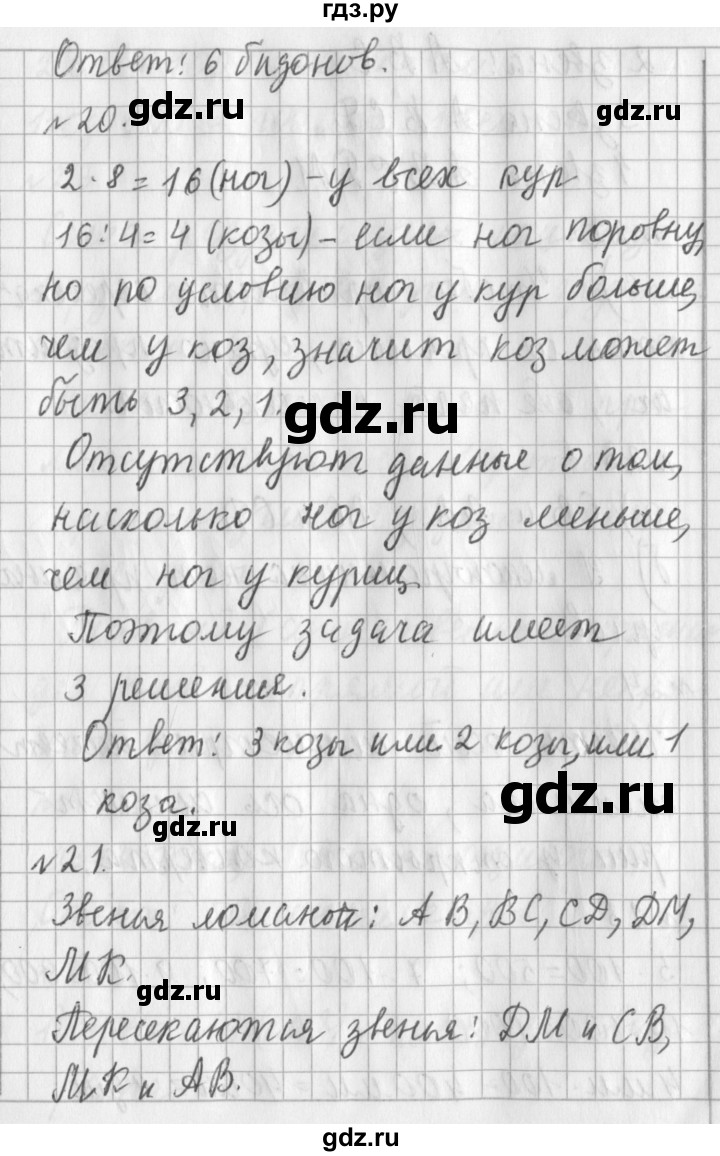 гдз.ру
Ответ: 6 бизонов.
gdz.ru
gdz.ru
№20.
2·8=16(ног) – у всех кур
16:4=4 (козы) – если ног поровну,
но по условию ног у кур больше,
чем у коз, значит коз может
быть 3, 2, 1.
gdz.ru
Отсутствуют данные о том,
насколько ног у коз меньше,
чем ног у куриц.
Поэтому задача имеет
3 решения.
Ответ: 3 козы или 2 козы, или 1
коза.
gdz.ru
gdz.ru
№21.
Звенья ломаной: АВ, ВС, СD, DМ,
МК.
gdz.ru
Пересекаются звенья: DМ и СВ,
МК и АВ.
gdz.ru